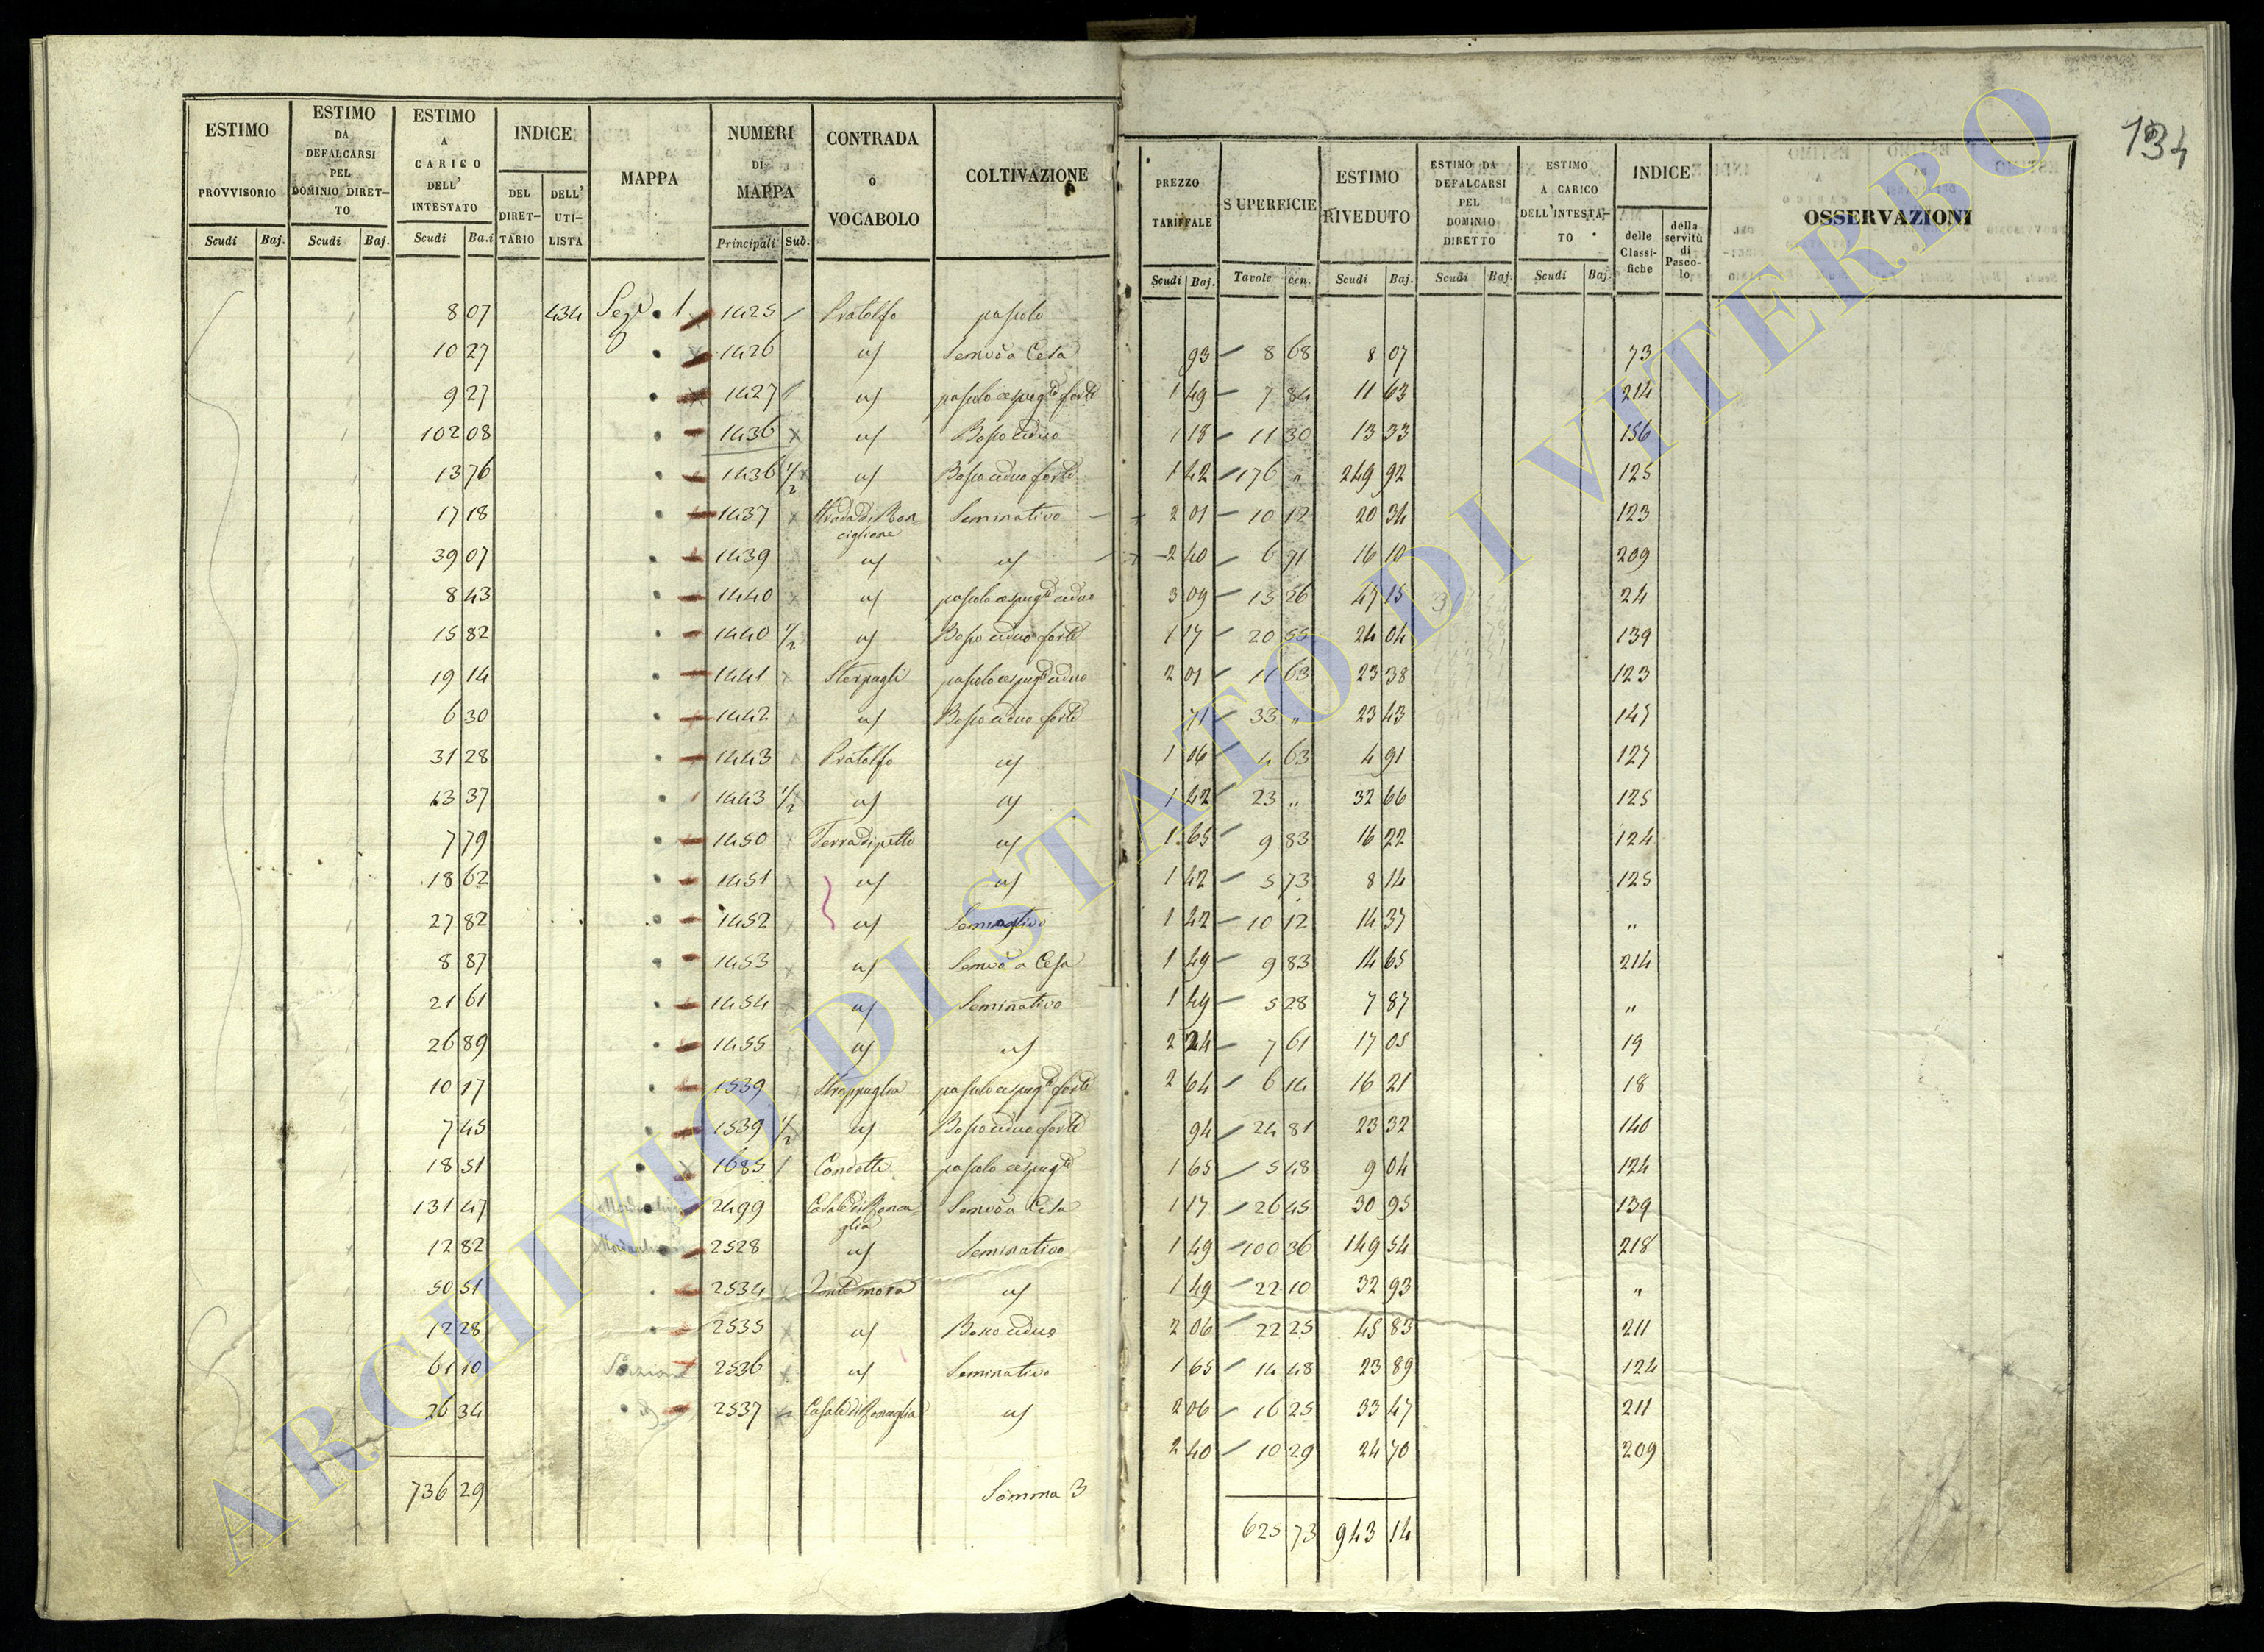 134
ESTIMO PROVVISORIO
ESTIMO DA DEFALCARSI PEL DOMINIO DIRETTO
ESTIMO A CARICO DELL' INTESTATO
INDICE
DEL DIRETTARIO
DELL' UTILISTA
MAPPA
NUMERI DI MAPPA
CONTRADA o VOCABOLO
COLTIVAZIONE
Scudi Baj. Scudi Baj. Scudi Baj. Principali Sub.
8 07 434 Sez. 1 1425 Pratolfo pascolo
10 27 1426 id Semvo a Cesa
9 27 1427 id pascolo cespugto forte
102 08 1436 id Bosco ceduo
13 76 1436 1/2 id Bosco ceduo forte
17 18 1437 Strada di Ronciglione Seminativo
39 07 1439 id id
8 43 1440 id pascolo cespugto ceduo
15 82 1440 1/2 id Bosco ceduo forte
19 14 1441 Sterpagli pascolo cespugto ceduo
6 30 1442 id Bosco ceduo forte
31 28 1443 Pratolfo id
13 37 1443 1/2 id id
7 79 1450 Terra di petto id
18 62 1451 id id
27 82 1452 id Seminativo
8 87 1453 id Semvo a Cesa
21 61 1454 id Seminativo
26 89 1455 id id
10 17 1539 Strappaglia pascolo cespugto forte
7 45 1539 1/2 id Bosco ceduo forte
18 51 1685 Condotti pascolo cespugto
131 47 2499 Casale di Roncaglia Semvo a Cesa
12 82 2528 id Seminativo
50 51 2534 id
12 28 2535 id Bosco ceduo
61 10 2536 id Seminativo
26 34 2537 Casale di Roncaglia id
736 29 Somma 3
PREZZO TARIFFALE
SUPERFICIE
ESTIMO RIVEDUTO
ESTIMO DA DEFALCARSI PEL DOMINIO DIRETTO
ESTIMO A CARICO DELL'INTESTATO
INDICE
delle Classifiche
della servitù di Pascolo
OSSERVAZIONI
Scudi Baj. Tavole cen. Scudi Baj. Scudi Baj. Scudi Baj.
93 8 68 8 07 73
1 49 7 84 11 63 214
1 18 11 30 13 33 156
1 42 176 " 249 92 125
2 01 10 12 20 34 123
2 40 6 71 16 10 209
3 09 15 26 47 15 24
1 17 20 55 24 04 139
2 01 11 63 23 38 123
71 33 " 23 43 147
1 06 4 63 4 91 127
1 42 23 " 32 66 125
1 65 9 83 16 22 124
1 42 5 73 8 14 125
1 42 10 12 14 37 "
1 49 9 83 14 65 214
1 49 5 28 7 87 "
2 24 7 61 17 05 19
2 64 6 14 16 21 18
94 24 81 23 32 140
1 65 5 48 9 04 124
1 17 26 45 30 95 139
1 49 100 36 149 54 218
1 49 22 10 32 93 "
2 06 22 25 45 83 211
1 65 14 48 23 89 124
2 06 16 25 33 47 211
2 40 10 29 24 70 209
625 73 943 14
ARCHIVIO DI STATO DI VITERBO